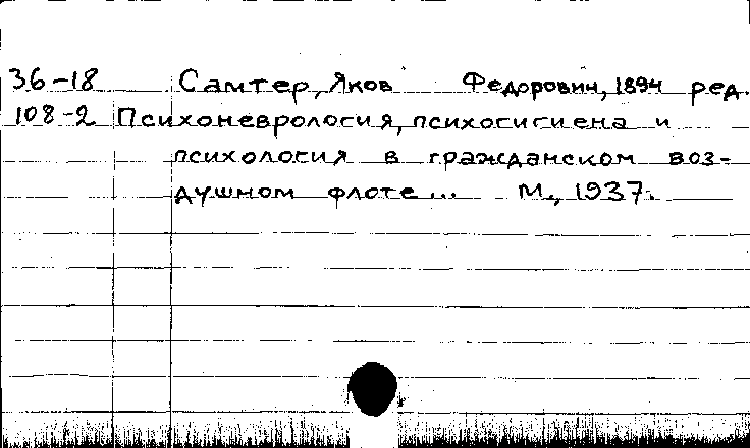 36-18 Самтер, Яков Федорович, 1894 ред.
108-2 Психоневрология, психогигиена и
психология в гражданском воз-
душном флоте... М., 1937.